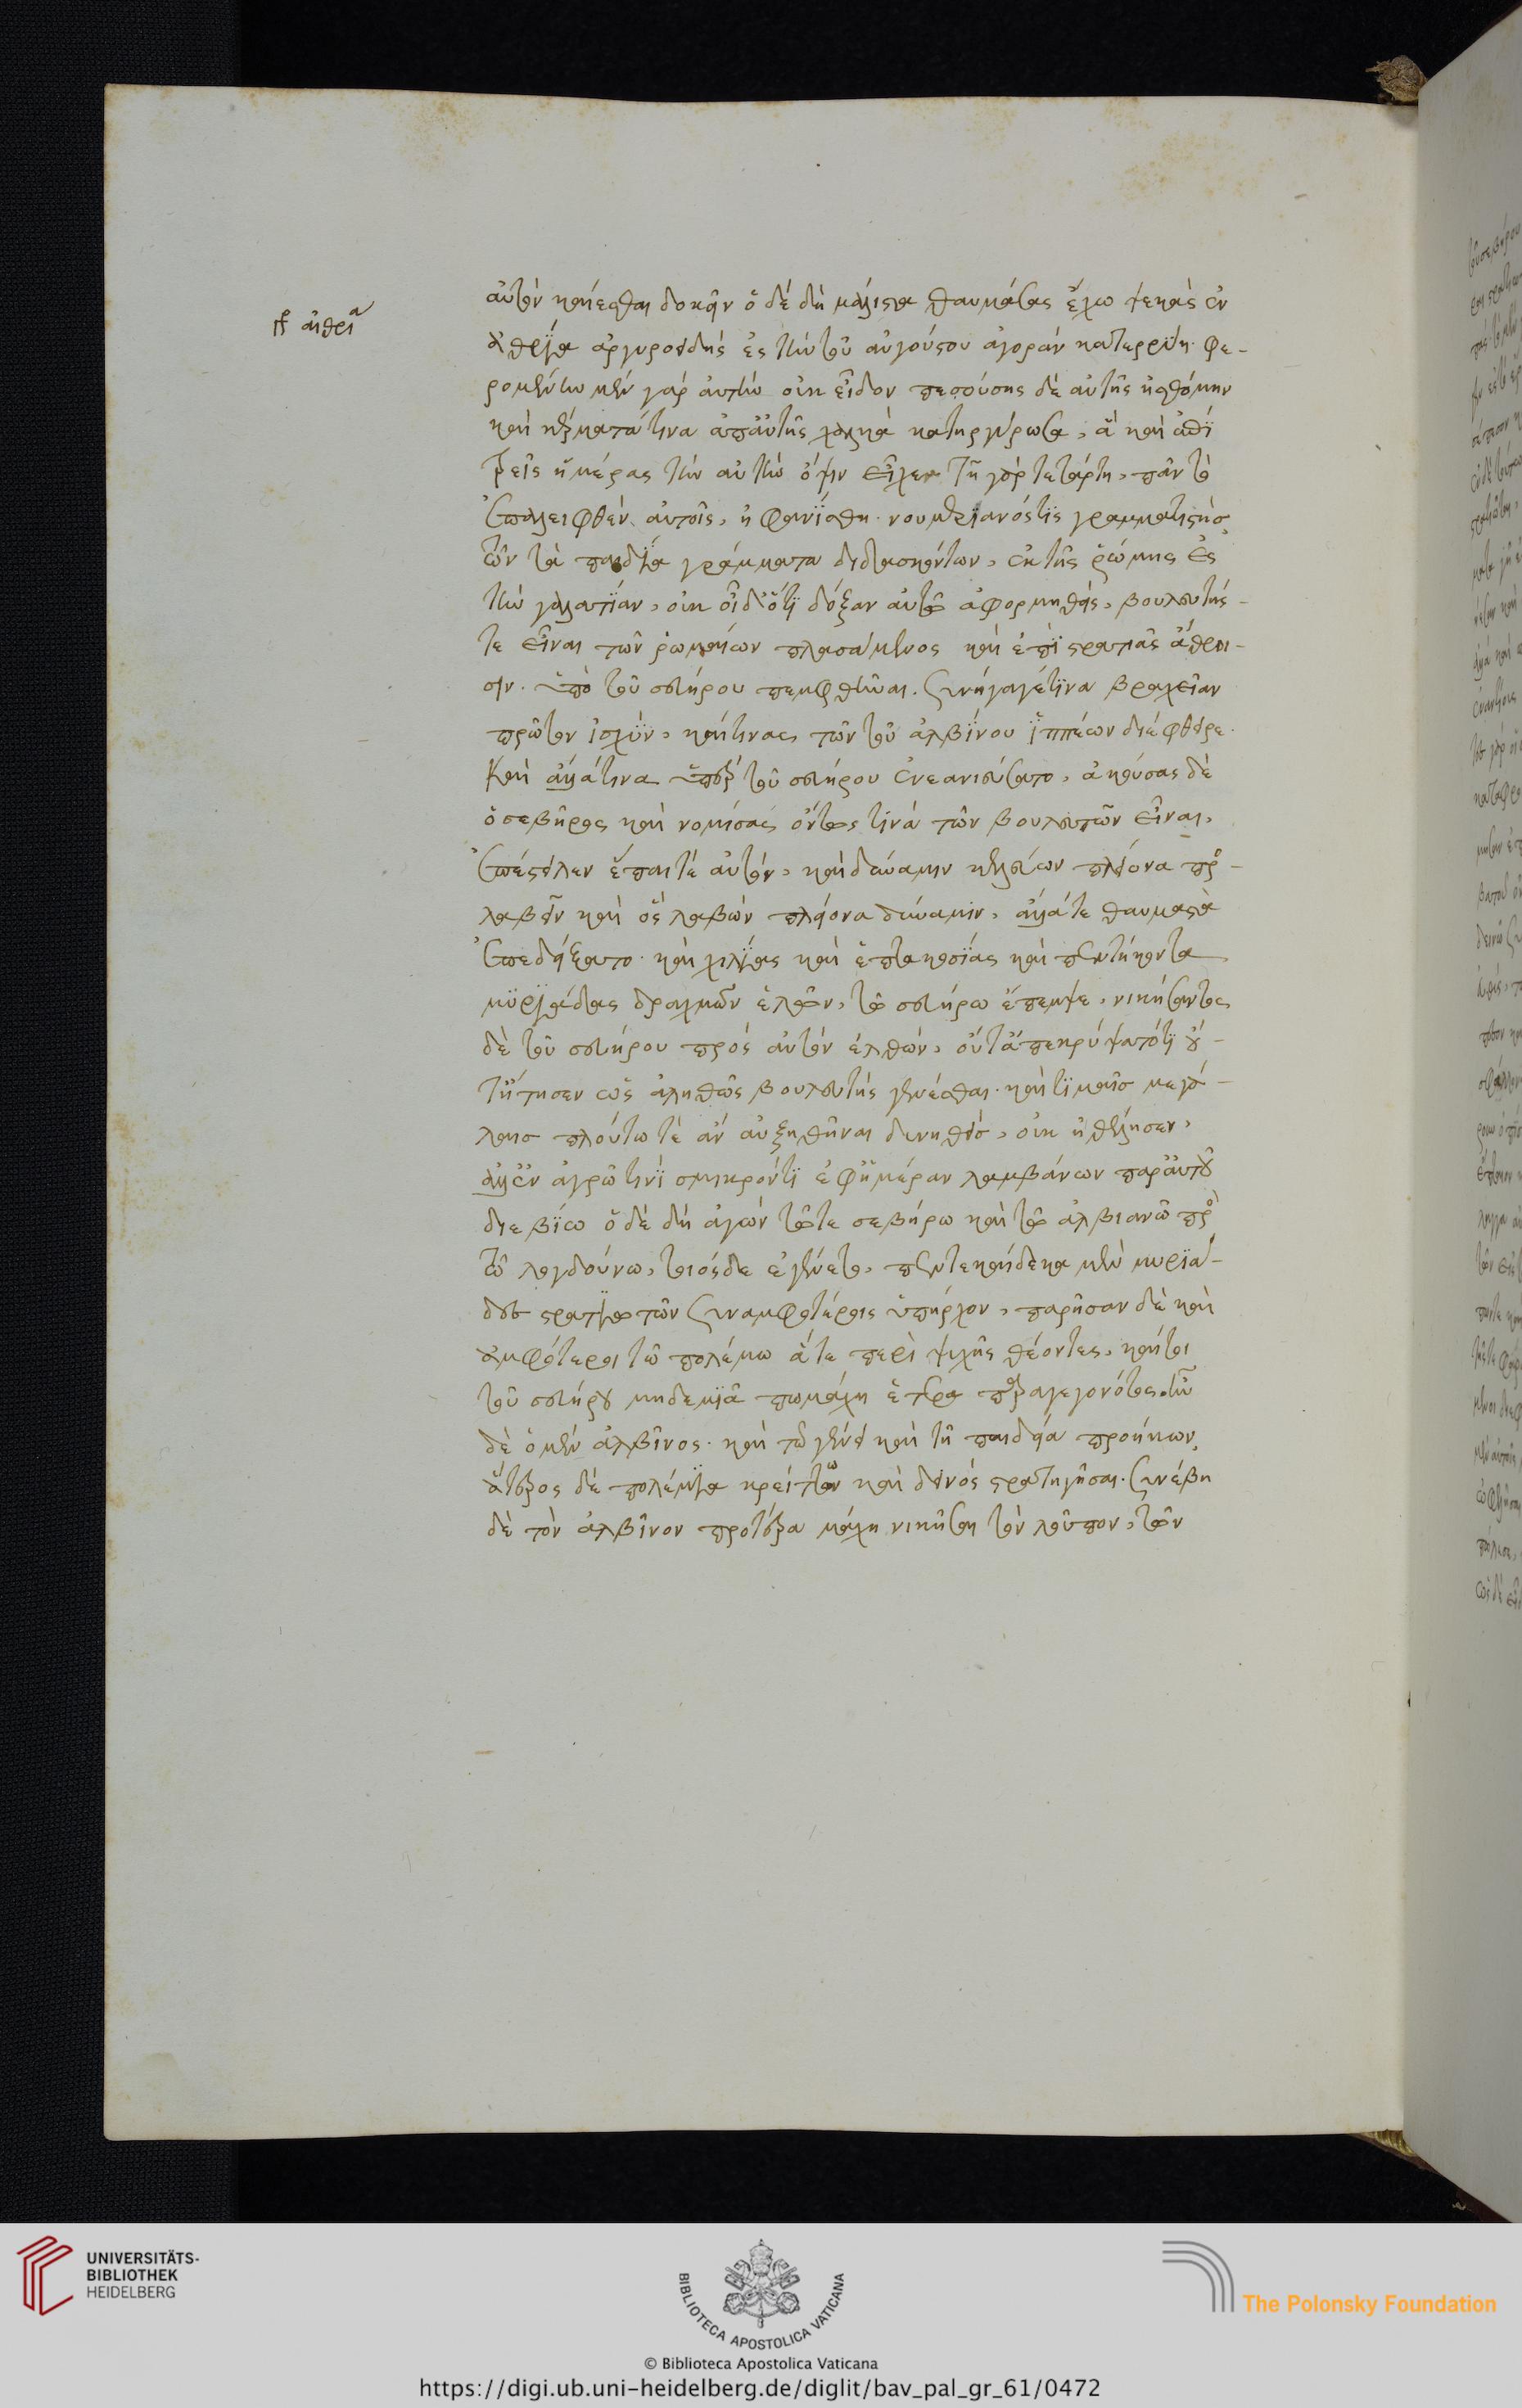 γρ αἰθρία
αὐτὸν καίεσθαι δοκεῖν ὃ δὲ δὴ μάλιστα θαυμάσας ἔχω ψεκὰς ἐν
αἰθρία ἀργυροειδὴς ἐς τὴν τοῦ αὐγούστου ἀγορὰν κατερρύη. φε-
ρομένην μὲν γὰρ αὐτὴν οὐκ εἶδον πεσούσης δὲ αὐτῆς ᾐσθόμην
καὶ κέρματά τινα ἀπ' αὐτῆς χαλκᾶ κατηργύρωσα, ἃ καὶ ἐπὶ
τρεῖς ἡμέρας τὴν αὐτὴν ὄψιν εἶχε τῇ γὰρ τετάρτῃ, πᾶν τὸ
ἐπαλειφθὲν αὐτοῖς, ἠφανίσθη. νουμεριανός τις γραμματιστὴς
τῶν τὰ παιδία γράμματα διδασκόντων, ἐκ τῆς ῥώμης ἐς
τὴν γαλατίαν, οὐκ οἶδ' ὅτι δόξαν αὐτῷ ἀφορμηθείς, βουλευτής-
τε εἶναι τῶν ῥωμαίων πλασάμενος καὶ ἐπὶ στρατιᾶς ἄθροι-
σιν. ὑπὸ τοῦ σευήρου πεμφθῆναι. συνήγαγέ τινα βραχεῖαν
πρῶτον ἰσχύν, καί τινας, τῶν τοῦ ἀλβίνου ἱππέων διέφθειρε.
καὶ ἄλλα τινα ὑπὲρ τοῦ σευήρου ἐνεανιεύσατο, ἀκούσας δὲ
ὁ σεβῆρος καὶ νομίσας ὄντως τινά τῶν βουλευτῶν εἶναι,
ἐπέστειλεν ἐπαινῶν τε αὐτόν, καὶ δύναμιν κελεύων πλείονα προσ-
λαβεῖν καὶ ὃς λαβὼν πλείονα δύναμιν, ἄλλα τε θαυμαστὰ
ἐπεδείξατο. καὶ χιλίας καὶ ἑπτακοσίας καὶ πεντήκοντα
μυριάδας δραχμῶν ἑλών, τῷ σευήρῳ ἔπεμψε, νικήσαντος
δὲ τοῦ σευήρου πρὸς αὐτὸν ἐλθών, οὔτ' ἀπεκρύψατό τι οὔ-
τ' ᾔτησεν ὡς ἀληθῶς βουλευτὴς γενέσθαι. καὶ τιμαῖς μεγά-
λαις πλούτῳ τὲ ἂν αὐξηθῆναι δυνηθείς, οὐκ ἠθέλησεν,
ἀλλ' ἐν ἀγρῷ τινὶ σμικρόν τι ἐφ' ἡμέραν λαμβάνων παρ' αὐτοῦ
διεβίω ὁ δὲ δὴ ἀγὼν τῷ τε σεβήρῳ καὶ τῷ ἀλβιανῷ πρὸς
τῷ λουγδούνῳ, τοιόσδε ἐγένετο, πεντεκαίδεκα μὲν μυριά-
δες στρατιωτῶν συναμφοτέροις ὑπῆρχον, παρῆσαν δὲ καὶ
ἀμφότεροι τῷ πολέμῳ ἅτε περὶ ψυχῆς θέοντες, καίτοι
τοῦ σευήρου μηδεμιᾷ πω μάχῃ ἑτέρᾳ παραγεγονότος. ἦν
δὲ ὁ μὲν ἀλβῖνος. καὶ τῷ γένει καὶ τῇ παιδείᾳ προήκων,
ἅτερος δὲ πολέμια κρείττων καὶ δεινὸς στρατηγῆσαι. συνέβη
δὲ τὸν ἀλβῖνον προτέρᾳ μάχῃ νικῆσαι τὸν λοῦπον, τῶν
UNIVERSITÄTS-
BIBLIOTHEK
HEIDELBERG
BIBLIOTECA APOSTOLICA VATICANA
The Polonsky Foundation
© Biblioteca Apostolica Vaticana
https://digi.ub.uni-heidelberg.de/diglit/bav_pal_gr_61/0472